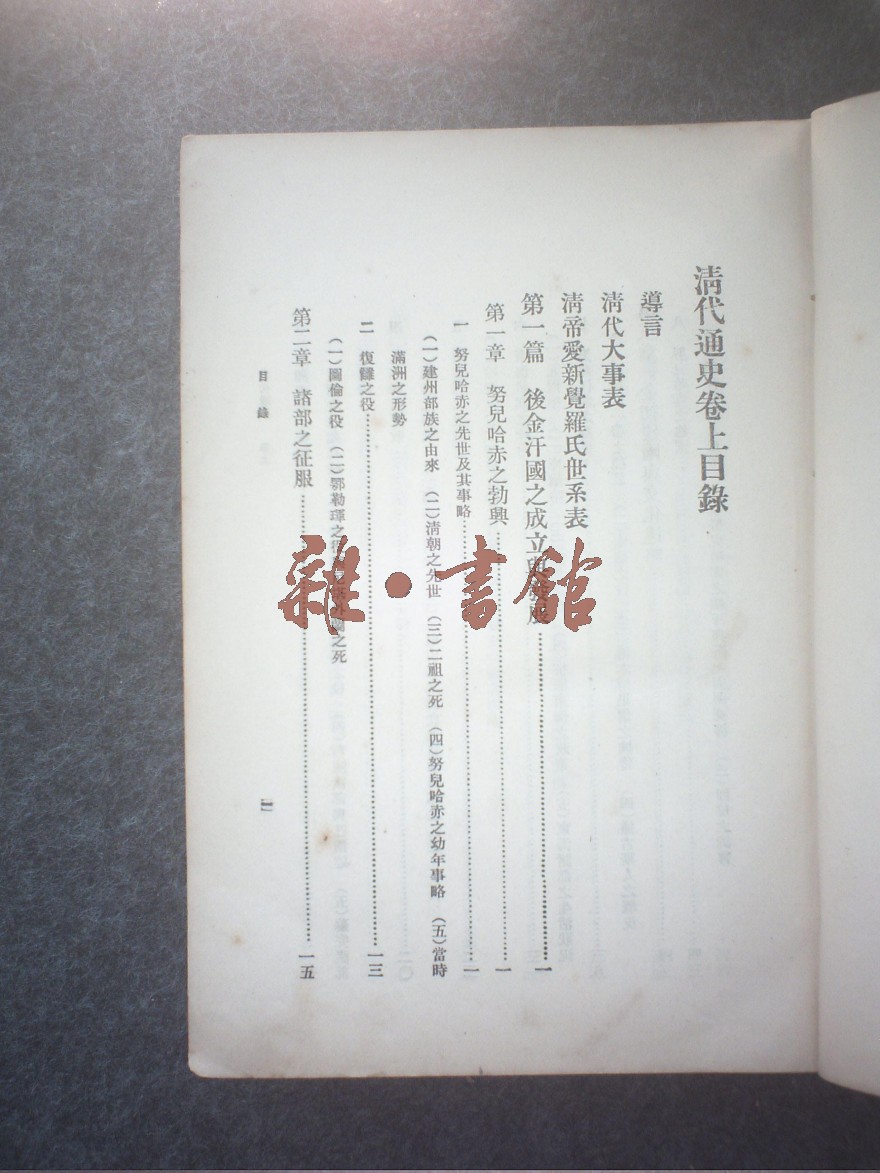 清代通史卷上目錄
導言
清代大事表
清帝愛新覺羅氏世系表
第一篇　後金汗國之成立與發展……一
第一章　努兒哈赤之勃興……一
一　努兒哈赤之先世及其事略……一
（一）建州部族之由來　（二）清朝之先世　（三）二祖之死　（四）努兒哈赤之幼年事略　（五）當時
滿洲之形勢
二　復讎之役……一三
（一）圖倫之役　（二）鄂勒琿之役　外蘭之死
第二章　諸部之征服……一五
目錄
一
雜·書館